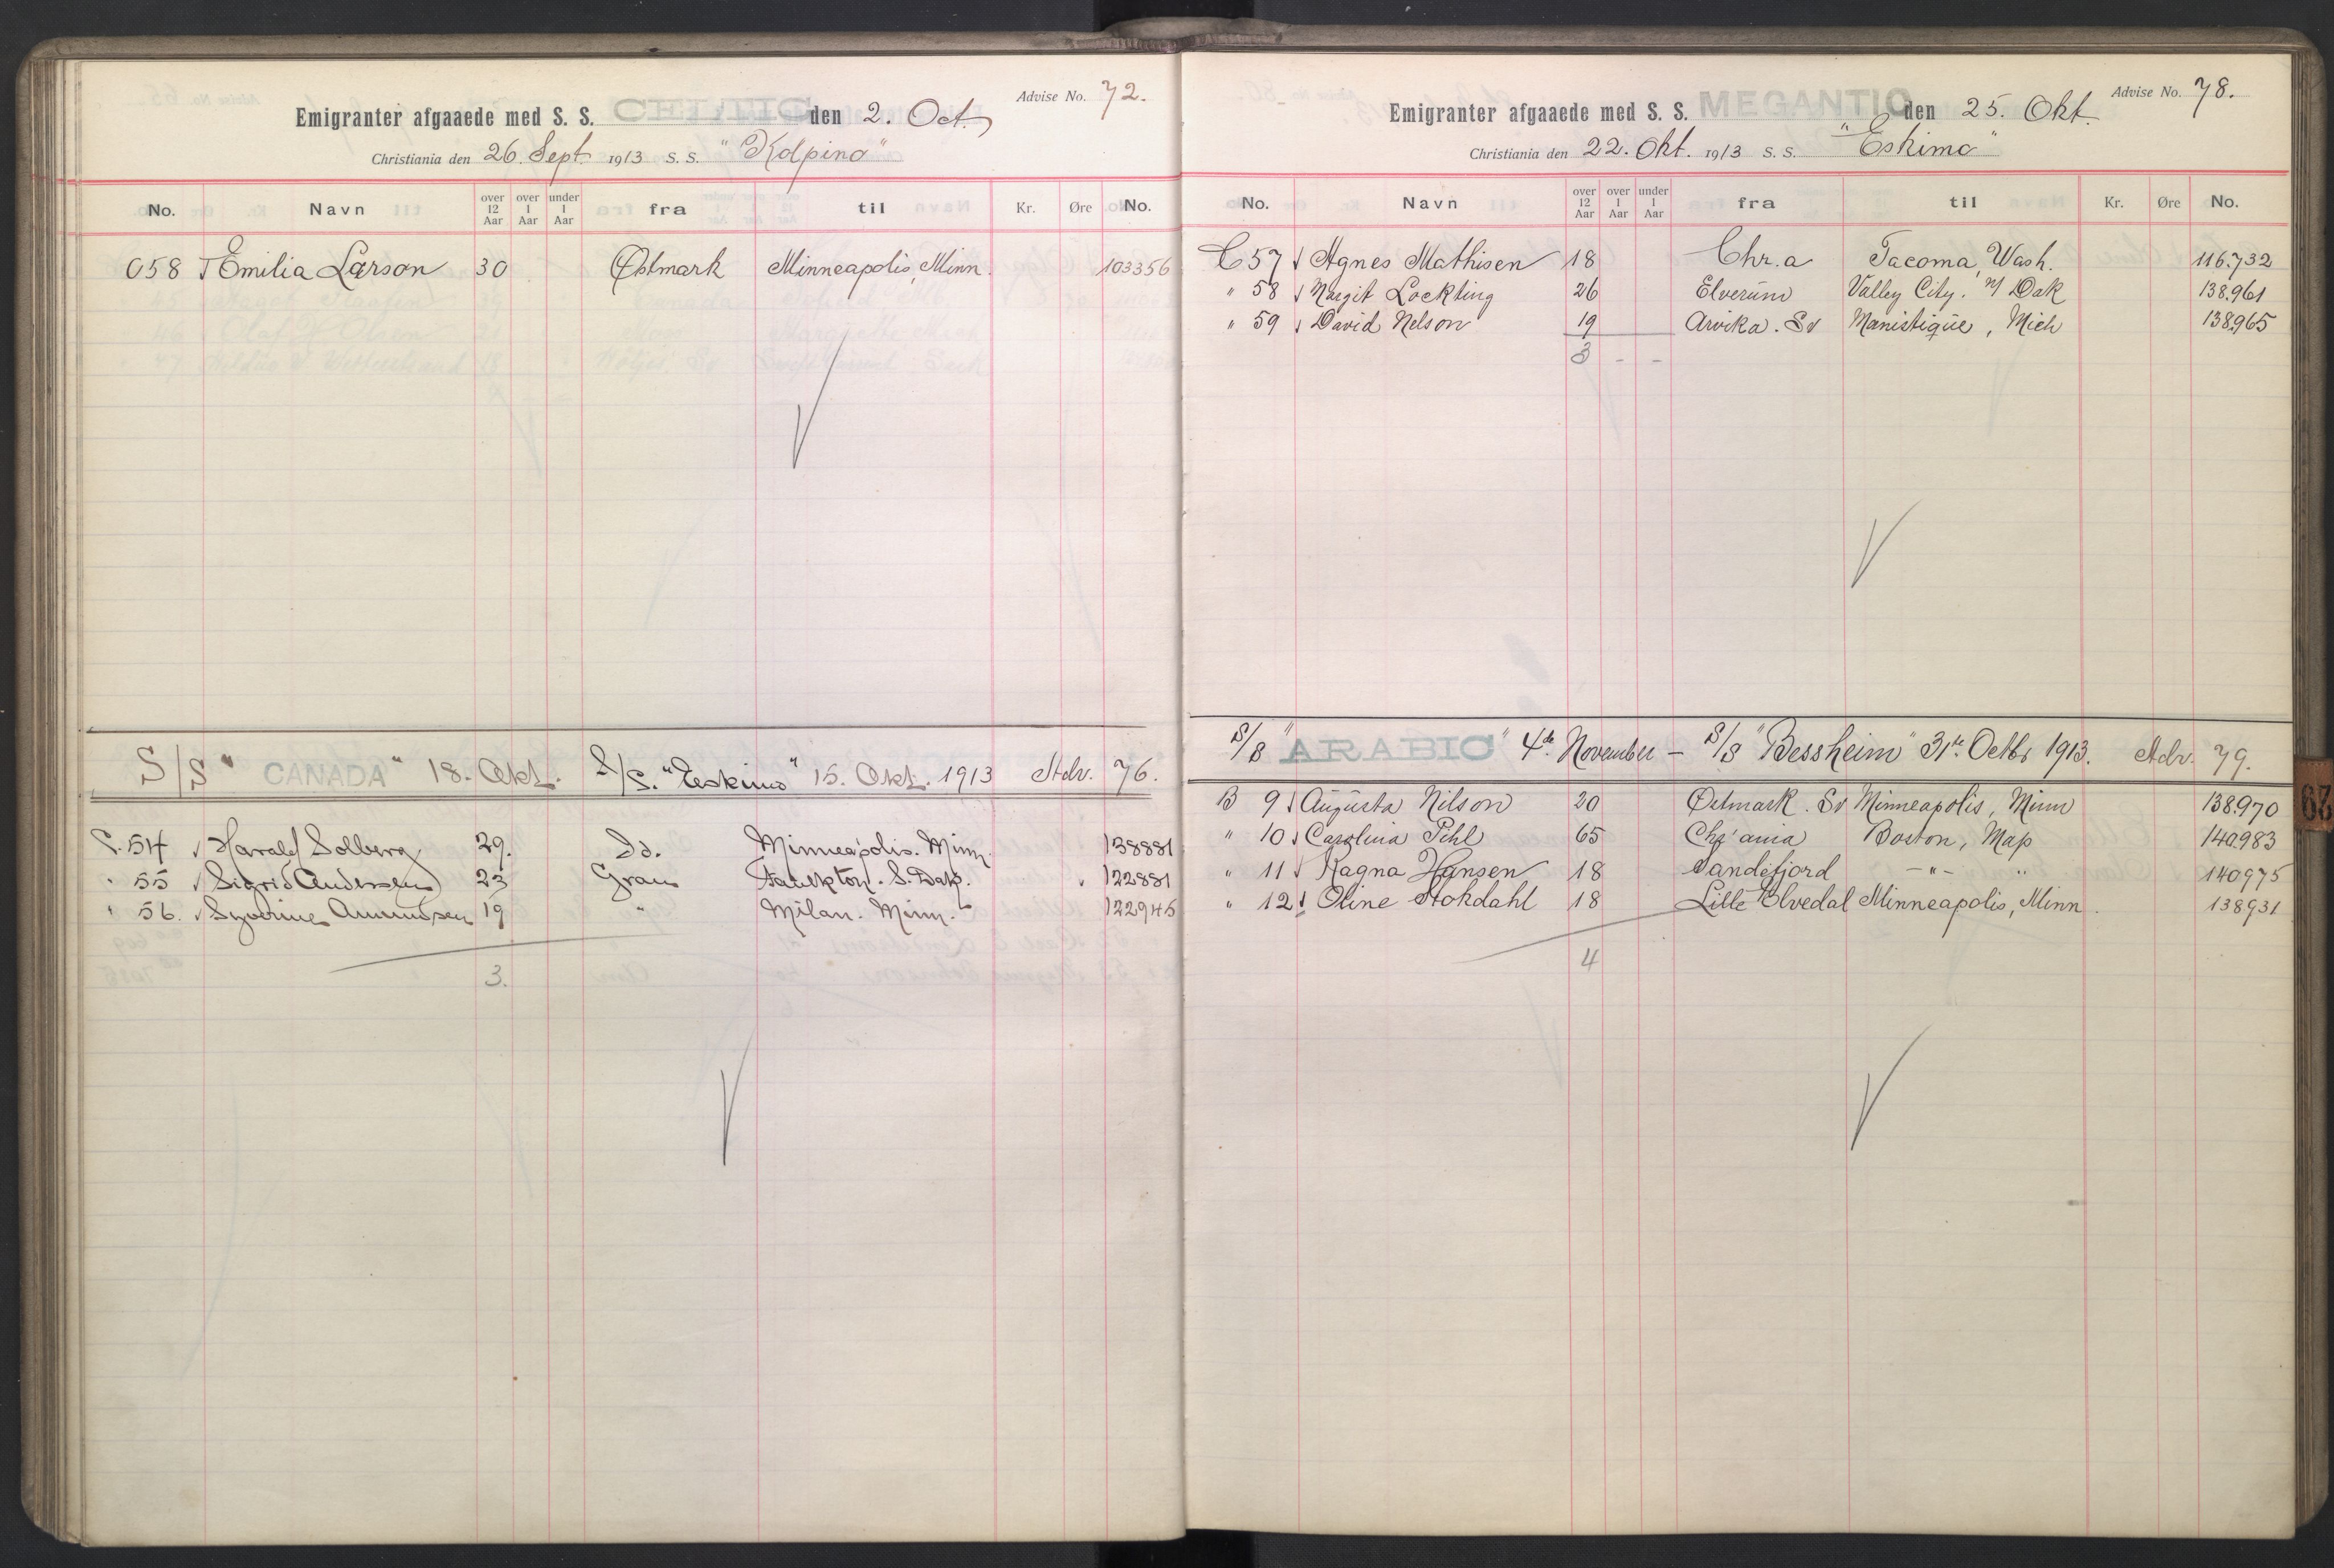 Advise No. 72.
Emigranter afgaaede med S. S. CELTIC den 2. Oct.
Christiania den 26. Sept. 1913 S. S. "Kolpino"
No. Navn over 12 Aar over 1 Aar under 1 Aar fra til Kr. Øre No.
058 Emilia Larson 30 Østmark Minneapolis, Minn. 103356
S/S " CANADA " 18. Okt. S/S. "Eskimo" 15. Okt. 1913 Adv. 76.
C. 54 Harald Solberg 29. Id. Minneapolis. Minn. 138881
" 55 Sigrid Andersen 23 Gran Faulkton. S. Dak. 122881
" 56. Syverine Amundsen 19 " Milan. Minn. 122945
3.
Advise No. 78.
Emigranter afgaaede med S. S. MEGANTIC den 25. Okt.
Christiania den 22. Okt. 1913 S. S. "Eskimo"
No. Navn over 12 Aar over 1 Aar under 1 Aar fra til Kr. Øre No.
C 57 Agnes Mathisen 18 Chr.a Tacoma, Wash. 116.732
" 58 Margit Lockting 26 Elverum Valley City. N/ Dak 138.961
" 59 David Nelson 19 Arvika. Sv Manistique, Mich 138.965
3 - -
S/S "ARABIC" 4de November - S/S "Bessheim" 31te Octbr 1913. Adv. 79.
B 9 Augusta Nilson 20 Østmark. Sv Minneapolis, Minn 138.970
" 10 Carolina Pihl 65 Chr'ania Boston, Mass 140.983
" 11 Ragna Hansen 18 Sandefjord -"- " 140975
" 12 Oline Stokdahl 18 Lille Elvedal Minneapolis, Minn. 138931
4
79